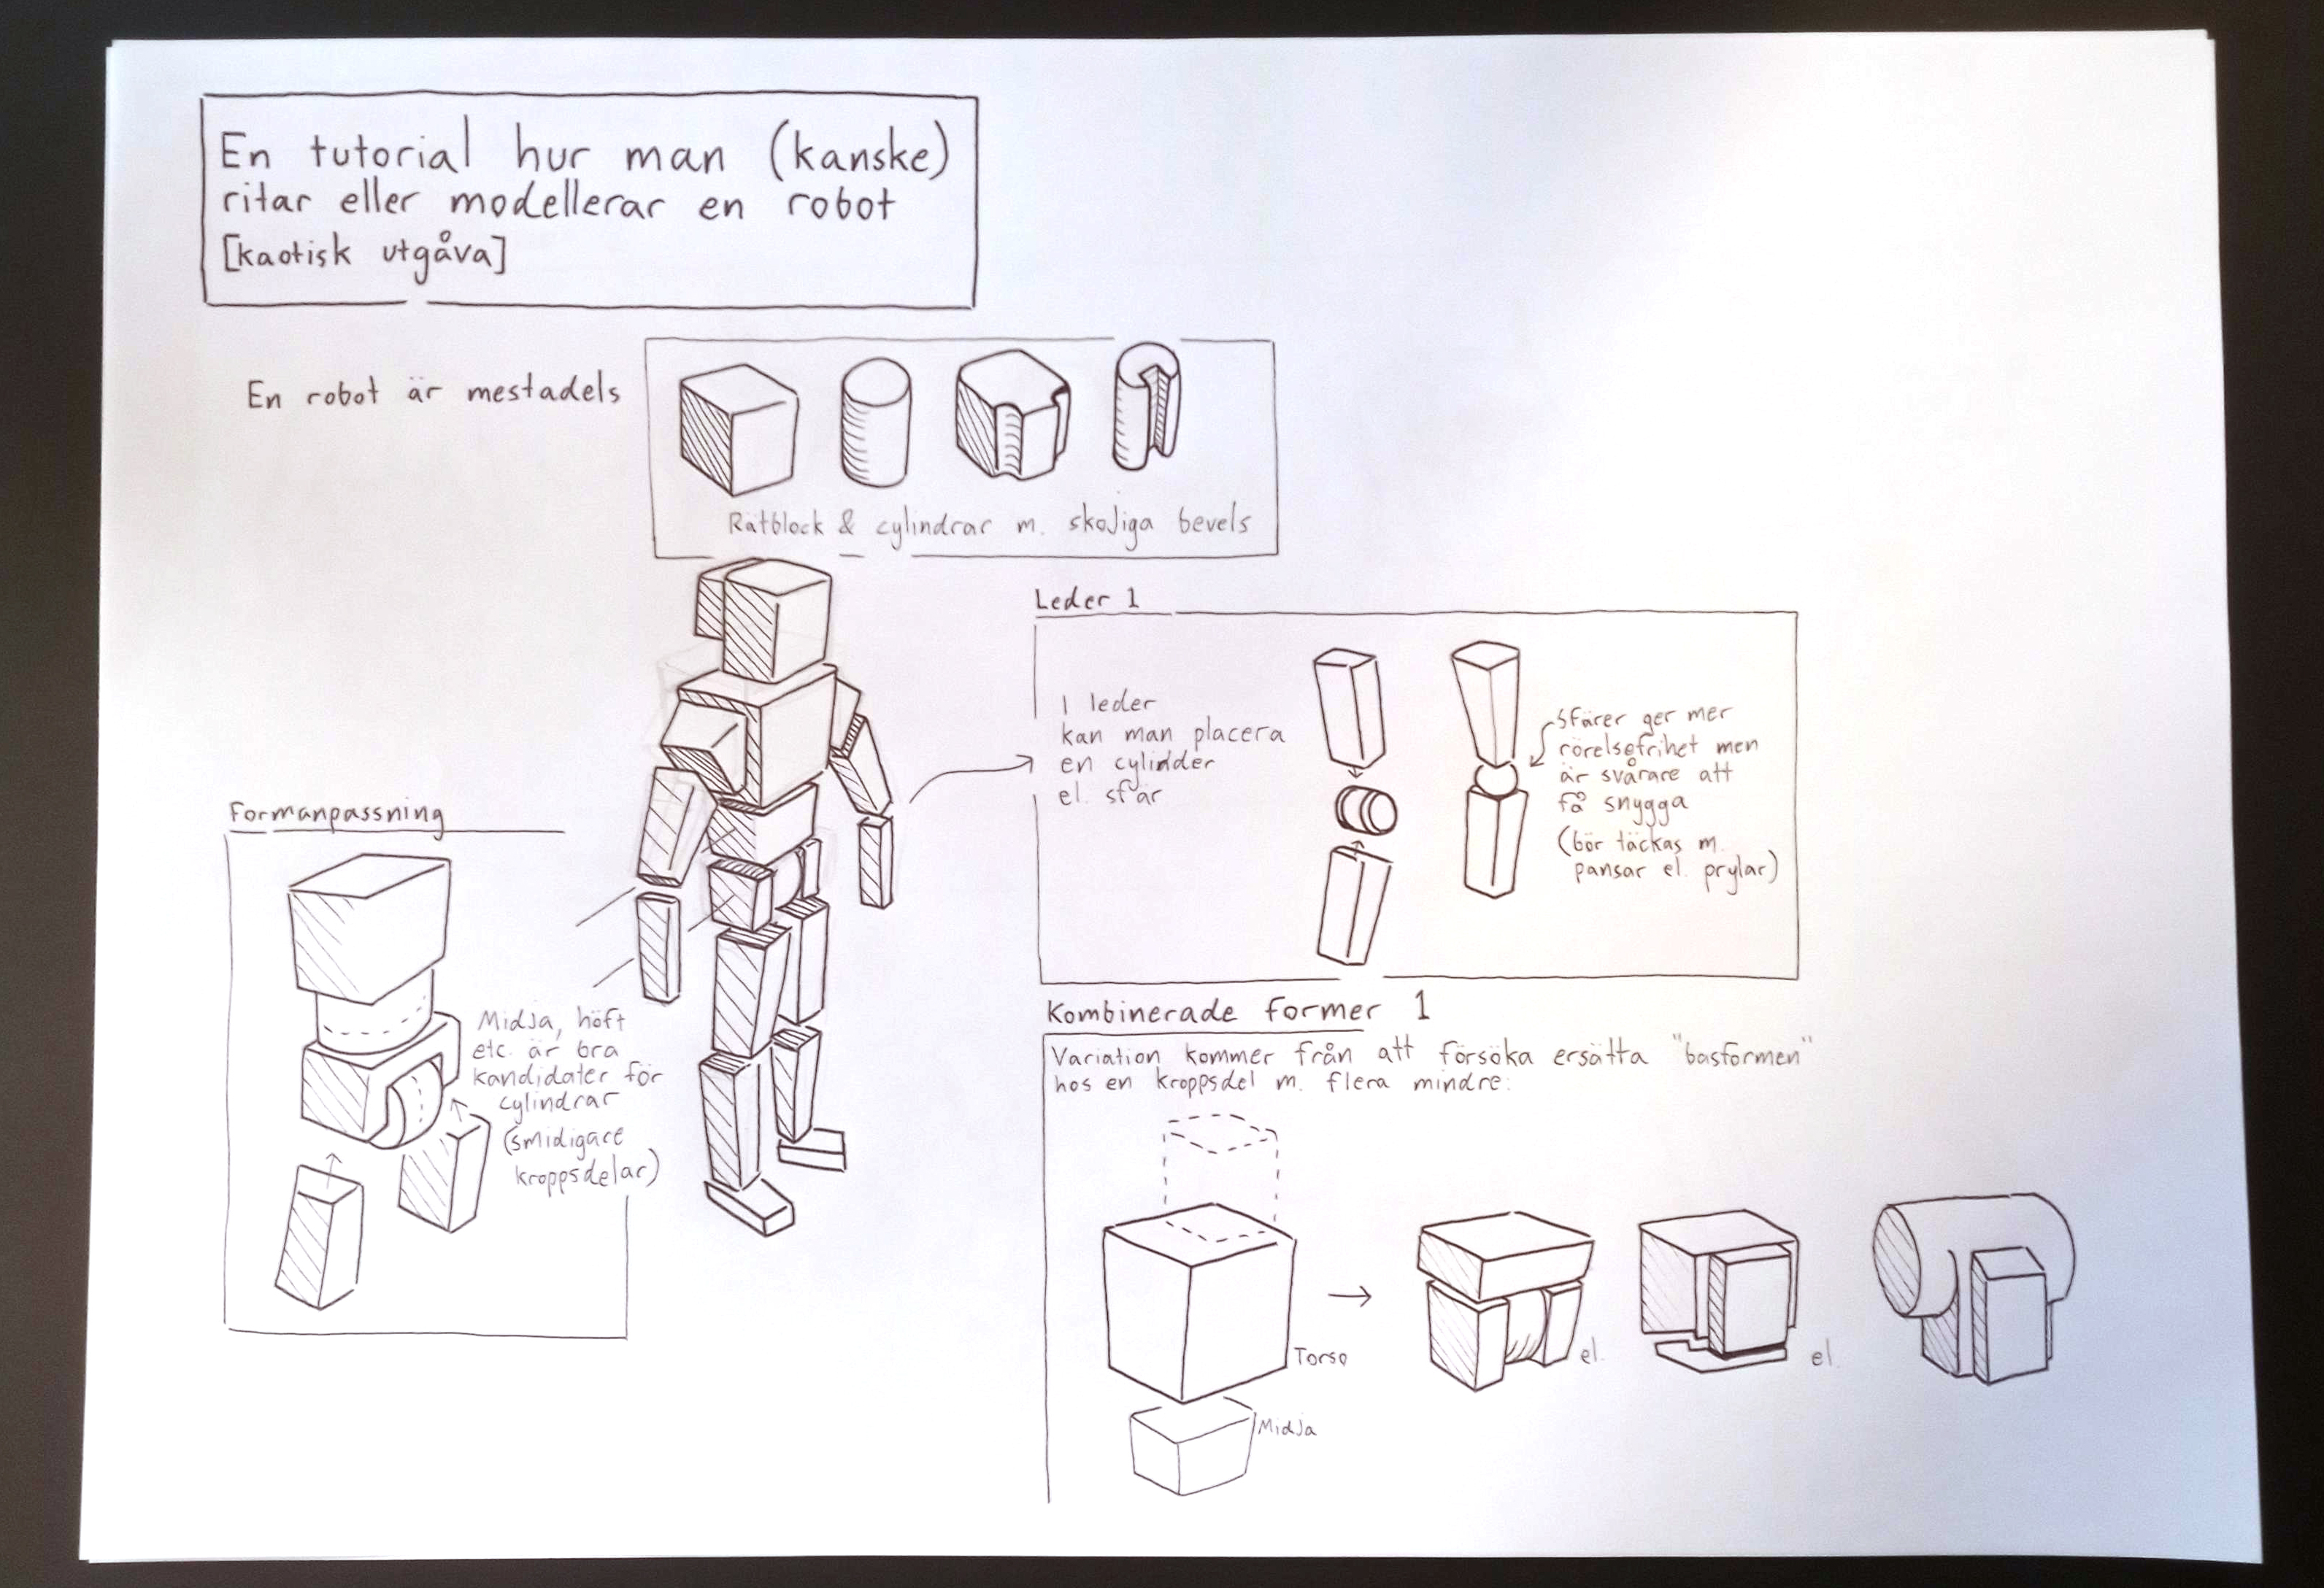 En tutorial hur man (kanske)
ritar eller modellerar en robot
[kaotisk utgåva]
En robot är mestadels
Rätblock & cylindrar m. skojiga bevels
Leder 1
I leder
kan man placera
en cylidder
el. sfär
Sfärer ger mer
rörelsefrihet men
är svårare att
få snygga
(bör täckas m.
pansar el. prylar)
Formanpassning
Midja, höft
etc. är bra
kandidater för
cylindrar
(smidigare
kroppsdelar)
Kombinerade former 1
Variation kommer från att försöka ersätta "basformen"
hos en kroppsdel m. flera mindre:
Torso
el.
el.
Midja